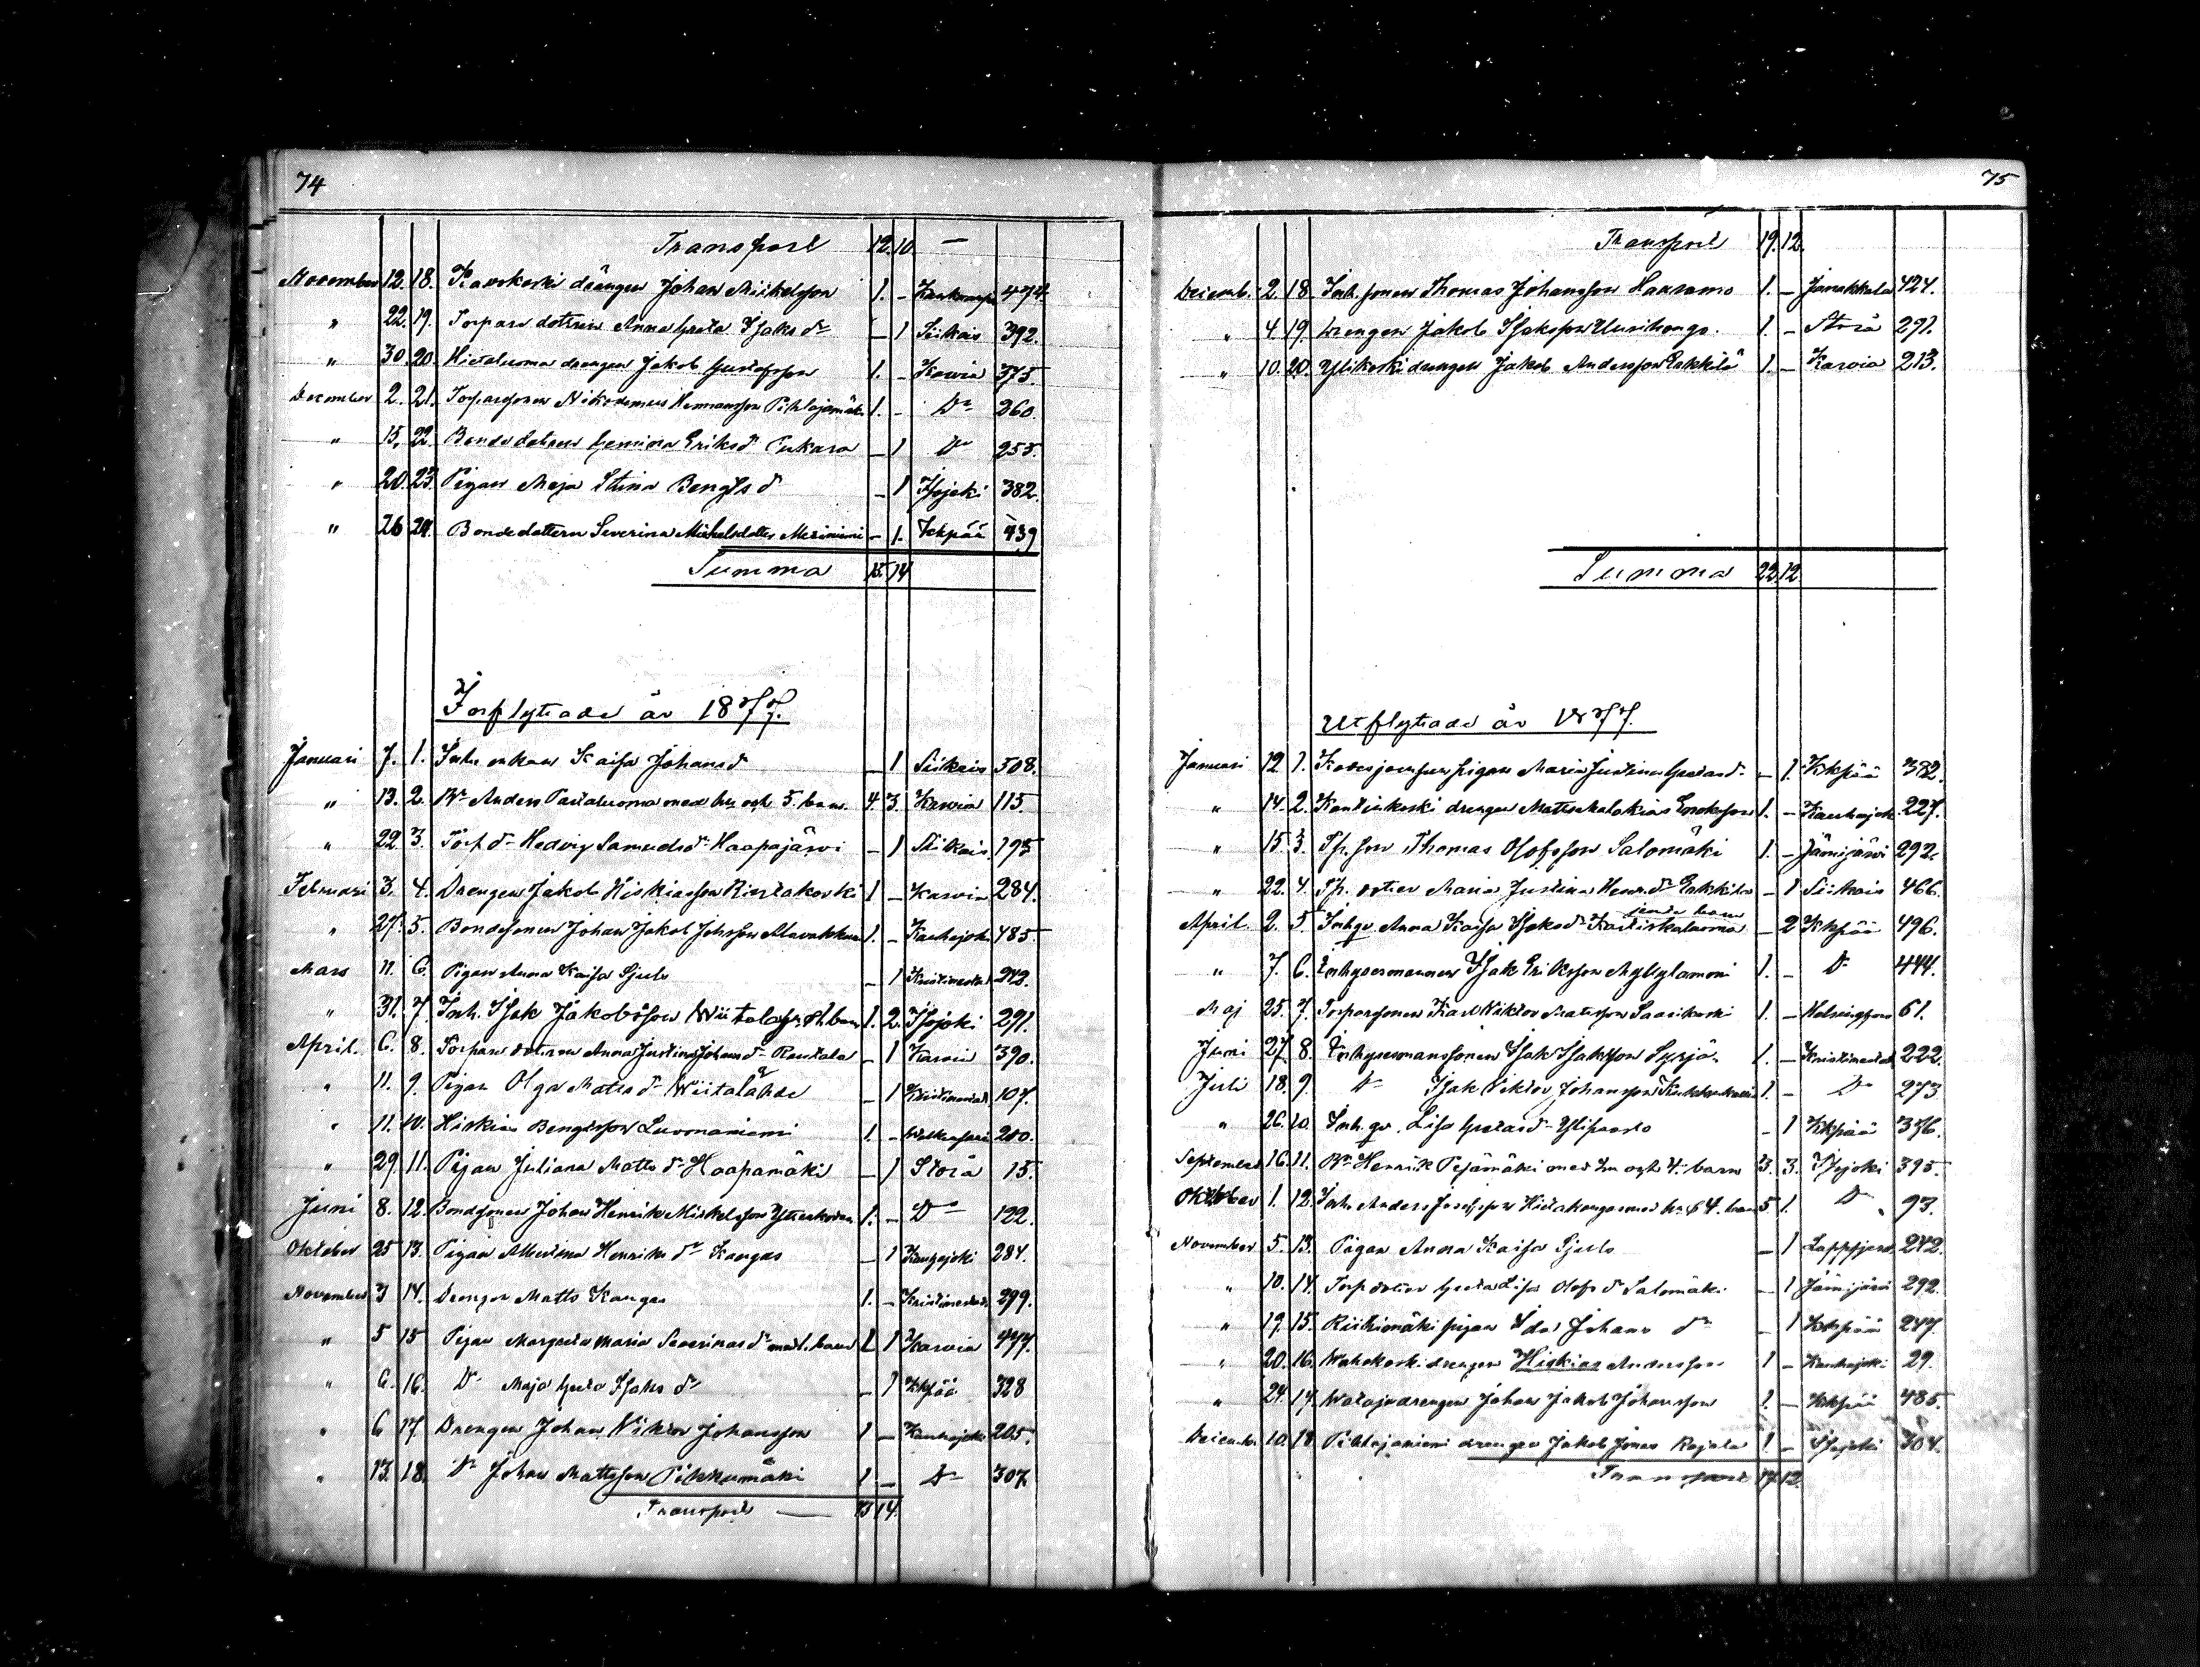 74
Transport 12. 10. —
November 12. 18. drängen Johan Mickelsson 1. - 474
" 22. 19. Torpare dottren Anna Greta Isaks dr - 1 Siikais 392.
" 30. 20. Hietaluoma drengen Jakob Gustafsson 1. - Karvia 375.
December 2. 21. Torparesonen Nikodemus Hermansson Pihlajamäki 1. - Do 260.
" 15. 22. Bonde dottren Eriksdr - 1 Do 255.
" 20. 23. Pigan Maja Stina Bengts d - 1 Isojoki 382.
" 26 24. Bondedottern Severina Mickelsdotter - 1. Kkpää 439
Summa 15. 14
Inflyttade år 1877.
Januari 7. 1. Inh. enkan Kaisa Johansd - 1 Siikais 508.
" 13. 2. Bn Anders med hu och 5. barn. 4. 3. Karvia 115
" 22 3. Torp dr Hedvig Samuelsdr Haapajärvi - 1 Siikais 195
Februari 3. 4. Drengen Jakob Hiskiasson 1 - Karvia 284.
" 27. 5. Bondesonen Johan Jakob Johsson 1. - Kauhajoki 485
Mars 11. 6. Pigan Anna Kaisa Sjuls - 1 Kristinestad 242.
" 31. 7. Inh. Isak Jakobsson Wiitala 1. 2. Isojoki 291.
April. 6. 8. Torpare dottren Anna Justina Johansdr Rantala - 1 Karvia 390.
" 11. 9. Pigan Olga Matts dr Wiitalähde - 1 Kristinestad 107.
" 11. 10. Hiskias Bengtsson Luomaniemi 1. - 200.
" 29. 11. Pigan Juliana Matts dr Haapamäki - 1 Storå 15.
Juni 8. 12. Bondsonen Johan Henrik Mickelsson 1. - Do 122.
Oktober 25 13. Pigan Albertina Henriks dr Kangas - 1 Kauhajoki 284.
November 3 14. Drengen Matts Kangas 1. - Kristinestad 299.
" 5 15 Pigan Margreta Maria Severinas dr med 1. barn 1 1 Karvia 477.
" 6. 16. Do Maja Greta Isaks dr - 1 Kkpää 328
" 6 17. Drengen Johan Viktor Johansson 1 - Kauhajoki 205.
" 13. 18. Do Johan Mattsson Pikkumäki 1 - Do 307
Transport — 13 14.
75
Transport 19. 12.
Decemb. 2 18. Inh. sonen Thomas Johansson 1. - Janakkala 424.
" 4. 19. Drengen Jakob Isaksson Uusihonga. 1. - Storå 291.
" 10. 20. Ylikoski drengen Jakob Andersson Erkkilä 1. - Karvia 213.
Summa 22. 12
Utflyttade år 1877.
Januari 12 1. pigan Maria Justina Gustasdr - 1. Kkpää 382.
" 14. 2. drengen Matts Malakias Enoksson 1. - Kauhajoki. 227.
" 15. 3. Tp. son Thomas Olofsson Salomäki 1. - Jämijärvi 292.
" 22. 4. Tp. dotter Maria Justina Henr.dr Erkkilä - 1 Siikais 466.
April. 2. 5. Inhqv Anna Kaisa Isaksdr - 2 Kkpää 496.
" 7. 6. Inhysesmannen Isak Eriksson 1. - Do 444.
Maj 25. 7. Torparsonen Karl Viktor Mattsson Saarikoski 1. - Helsingfors 61.
Juni 27. 8. Inhysesmanssonen Isak Isaksson Syrjä. 1. - Kristinestad 222.
Juli 18. 9. Do Isak Viktor Johansson 1. - Do 273
" 26. 10. Inh. qv. Lisa Gustasdr - 1 Kkpää 376.
September 16. 11. Bn Henrik Pejämäki med hu och 4. barn 3. 3. Isojoki 395.
Oktober 1. 12. Inh. Anders Josefsson Hietakangas med hu o 4. barn 5 1. Do 93.
November 5. 13. Pigan Anna Kaisa Sjuls - 1 Lappfjerd 242.
" 10. 14. Torp dotter Greta Lisa Olofs dr Salomäki - 1 Jämijärvi 292.
" 19. 15. Riihimäki pigan Ida Johans dr - 1 Kkpää 247.
" 20. 16. drengen Hiskias Andersson 1 - Kauhajoki 29.
" 24. 17. drengen Johan Jakob Johansson 1. - Kkpää 485.
December 10. 18 Pihlajaniemi drengen Jakob Jonas Rajala 1 - Isojoki 304.
Transport 17. 12.